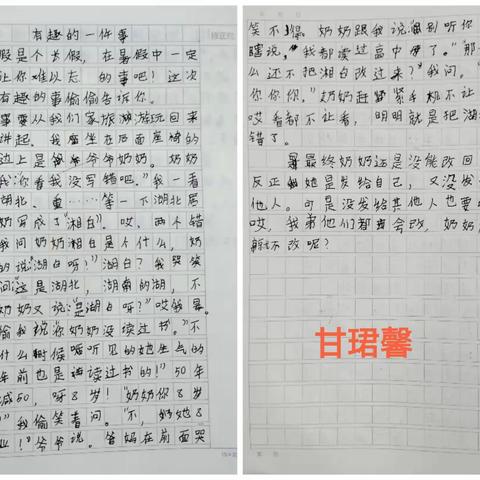 有趣的一件事
假是个长假，在暑假中一定
让你难以忘的事吧！这次
有趣的事偷偷告诉你。
事要从我们家旅游游玩回来
讲起。我坐在后面座椅的
边上是爷爷奶奶。奶奶
我：“你看我没写错吧。”我一看
湖北、重……等一下湖北居
奶写成了“湘白”。哎，两个错
我问奶奶湘白是个什么，奶
的说：“湖白呀！”湖白？我哭笑
问：“这是湖北，湖南的湖，不
奶奶又说：“是湖白呀？”哎我晕。
偷我说：“你奶奶没读过书。”不
什么时候听见的她生气的
年前也是读过书的！”50年
减50，呀8岁！“奶奶你8岁
”我偷笑着问。“不，奶她8
业！”爷爷说。爸妈在前面哭
笑不得。奶奶跟我说：“别听你
瞎说，我都读过高中了。”“那
么还不把湘白改过来？”我问。“
你你你。”奶奶赶紧手机不让
哎看都不让看，明明就是把湖
错了。
最终奶奶还是没能改回
反正她是发给自己，又没发
他人。可是没发给其他人也要
哎，我弟他们都会改，奶奶
就不改呢？
甘珺馨